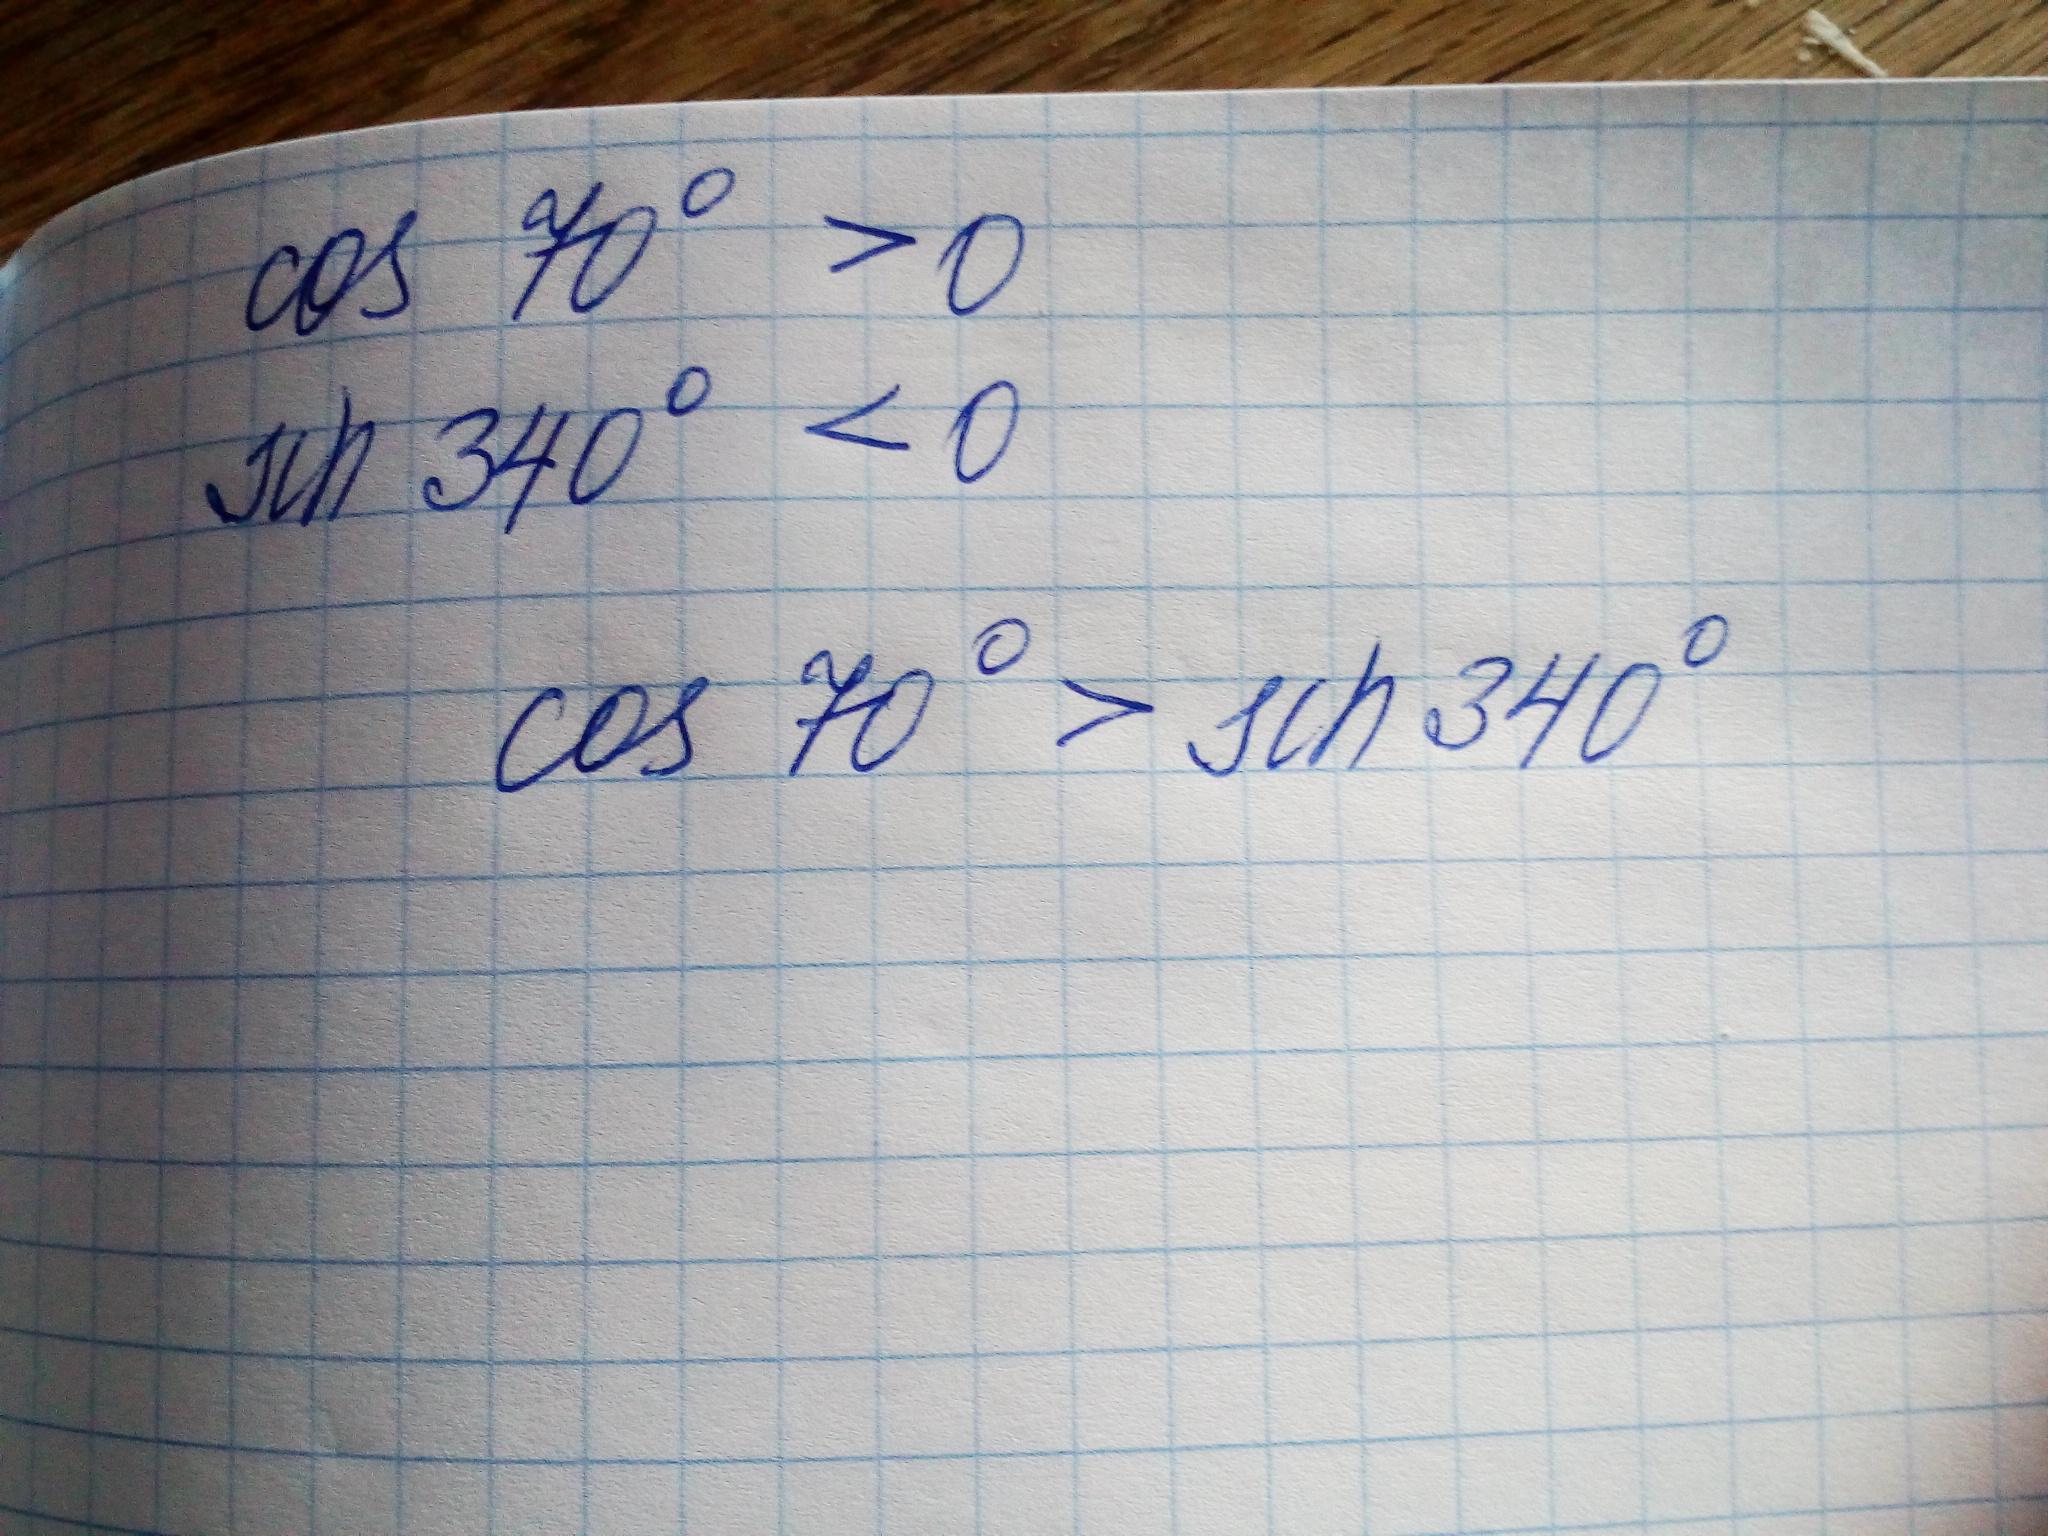 cos 70° > 0
sin 340° < 0
cos 70° > sin 340°